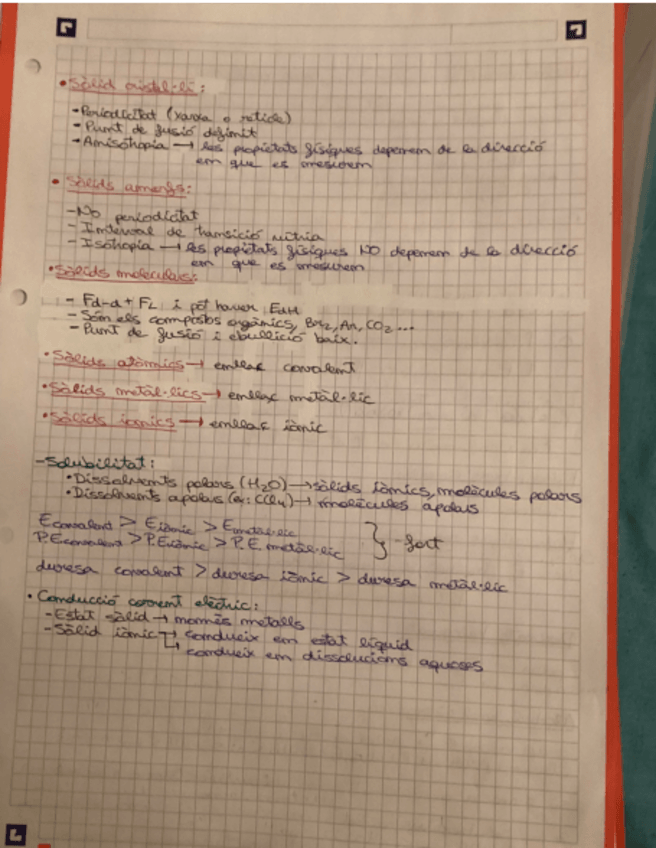 • Sòlid cristal·lí:
- Periodicitat (xarxa o retícle)
- Punt de fusió definit
- Anisotropia → les propietats físiques depenen de la direcció
en que es mesuren
• Sòlids amorfs:
- No periodicitat
- Interval de transició vítria
- Isotropia → les propietats físiques NO depenen de la direcció
en que es mesuren
• Sòlids moleculars:
- Fd-d + FL i pot haver EdH
- Són els compostos orgànics, Br2, Ar, CO2 ...
- Punt de fusió i ebullició baix.
• Sòlids atòmics → enllaç covalent
• Sòlids metàl·lics → enllaç metàl·lic
• Sòlids iònics → enllaç iònic
- Solubilitat:
• Dissolvents polars (H2O) → sòlids iònics, molècules polars
• Dissolvents apolars (ex: CCl4) → molècules apolars
Ecovalent > Eiònic > Emetàl·lic
P.Ecovalent > P.Eiònic > P.E. metàl·lic } - fort
duresa covalent > duresa iònic > duresa metàl·lic
• Conducció corrent elèctric:
- Estat sòlid → només metalls
- Sòlid iònic → condueix em estat líquid
↳ condueix en dissolucions aquoses